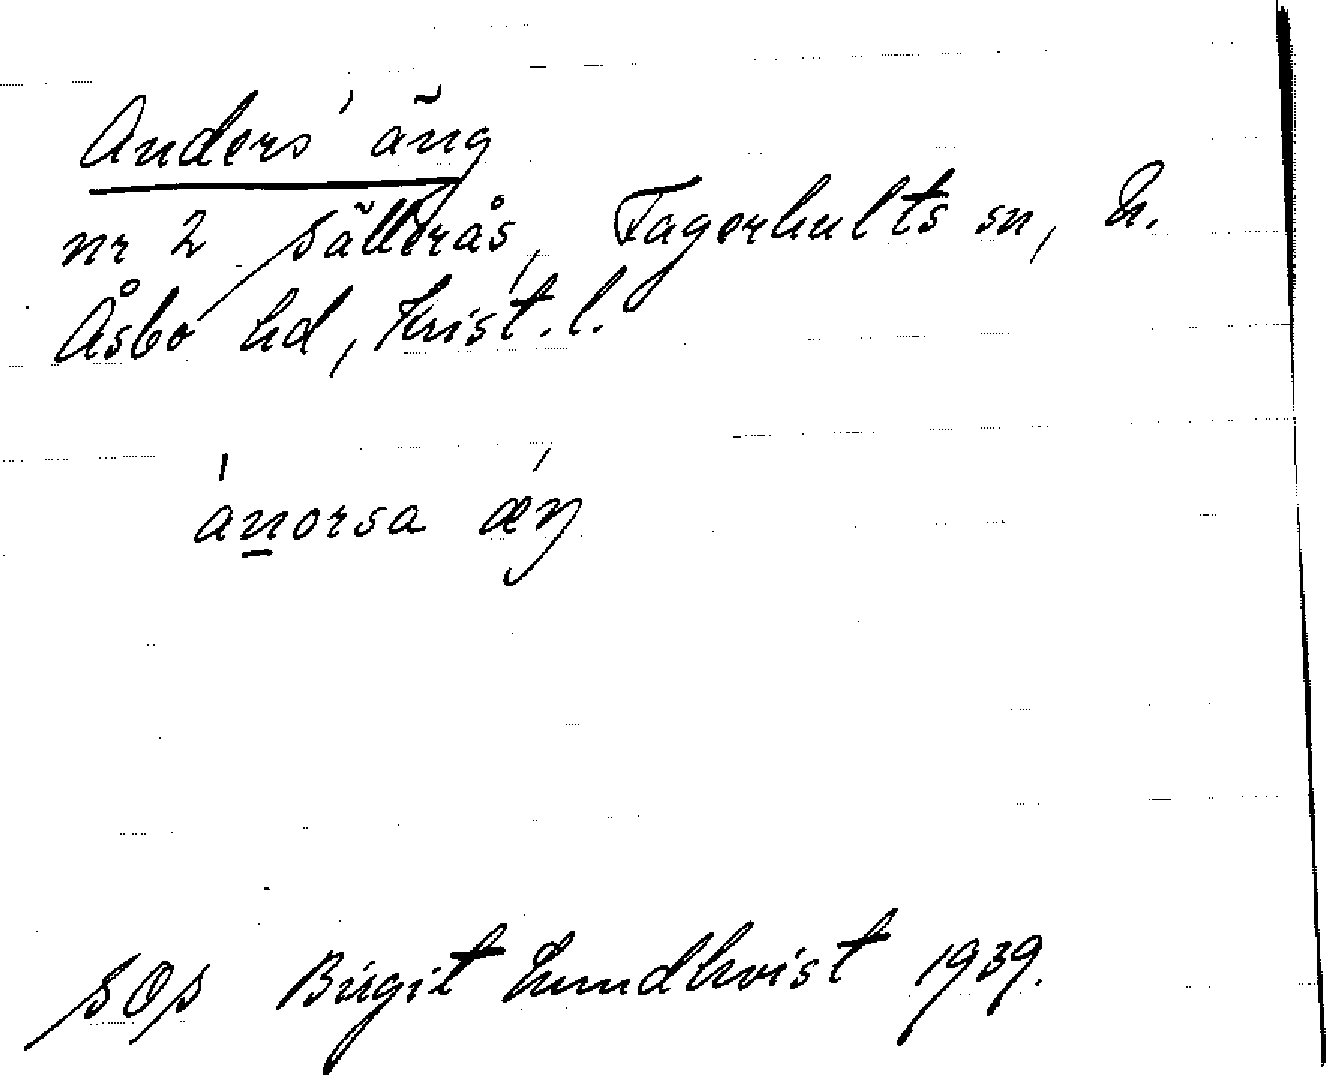 Anders' äng
nr 2 Sällerås, Fagerhults sn, N.
Åsbo hd, Krist. l.
ánorsa ǽŋ
SOs Birgit Lundkvist 1939.